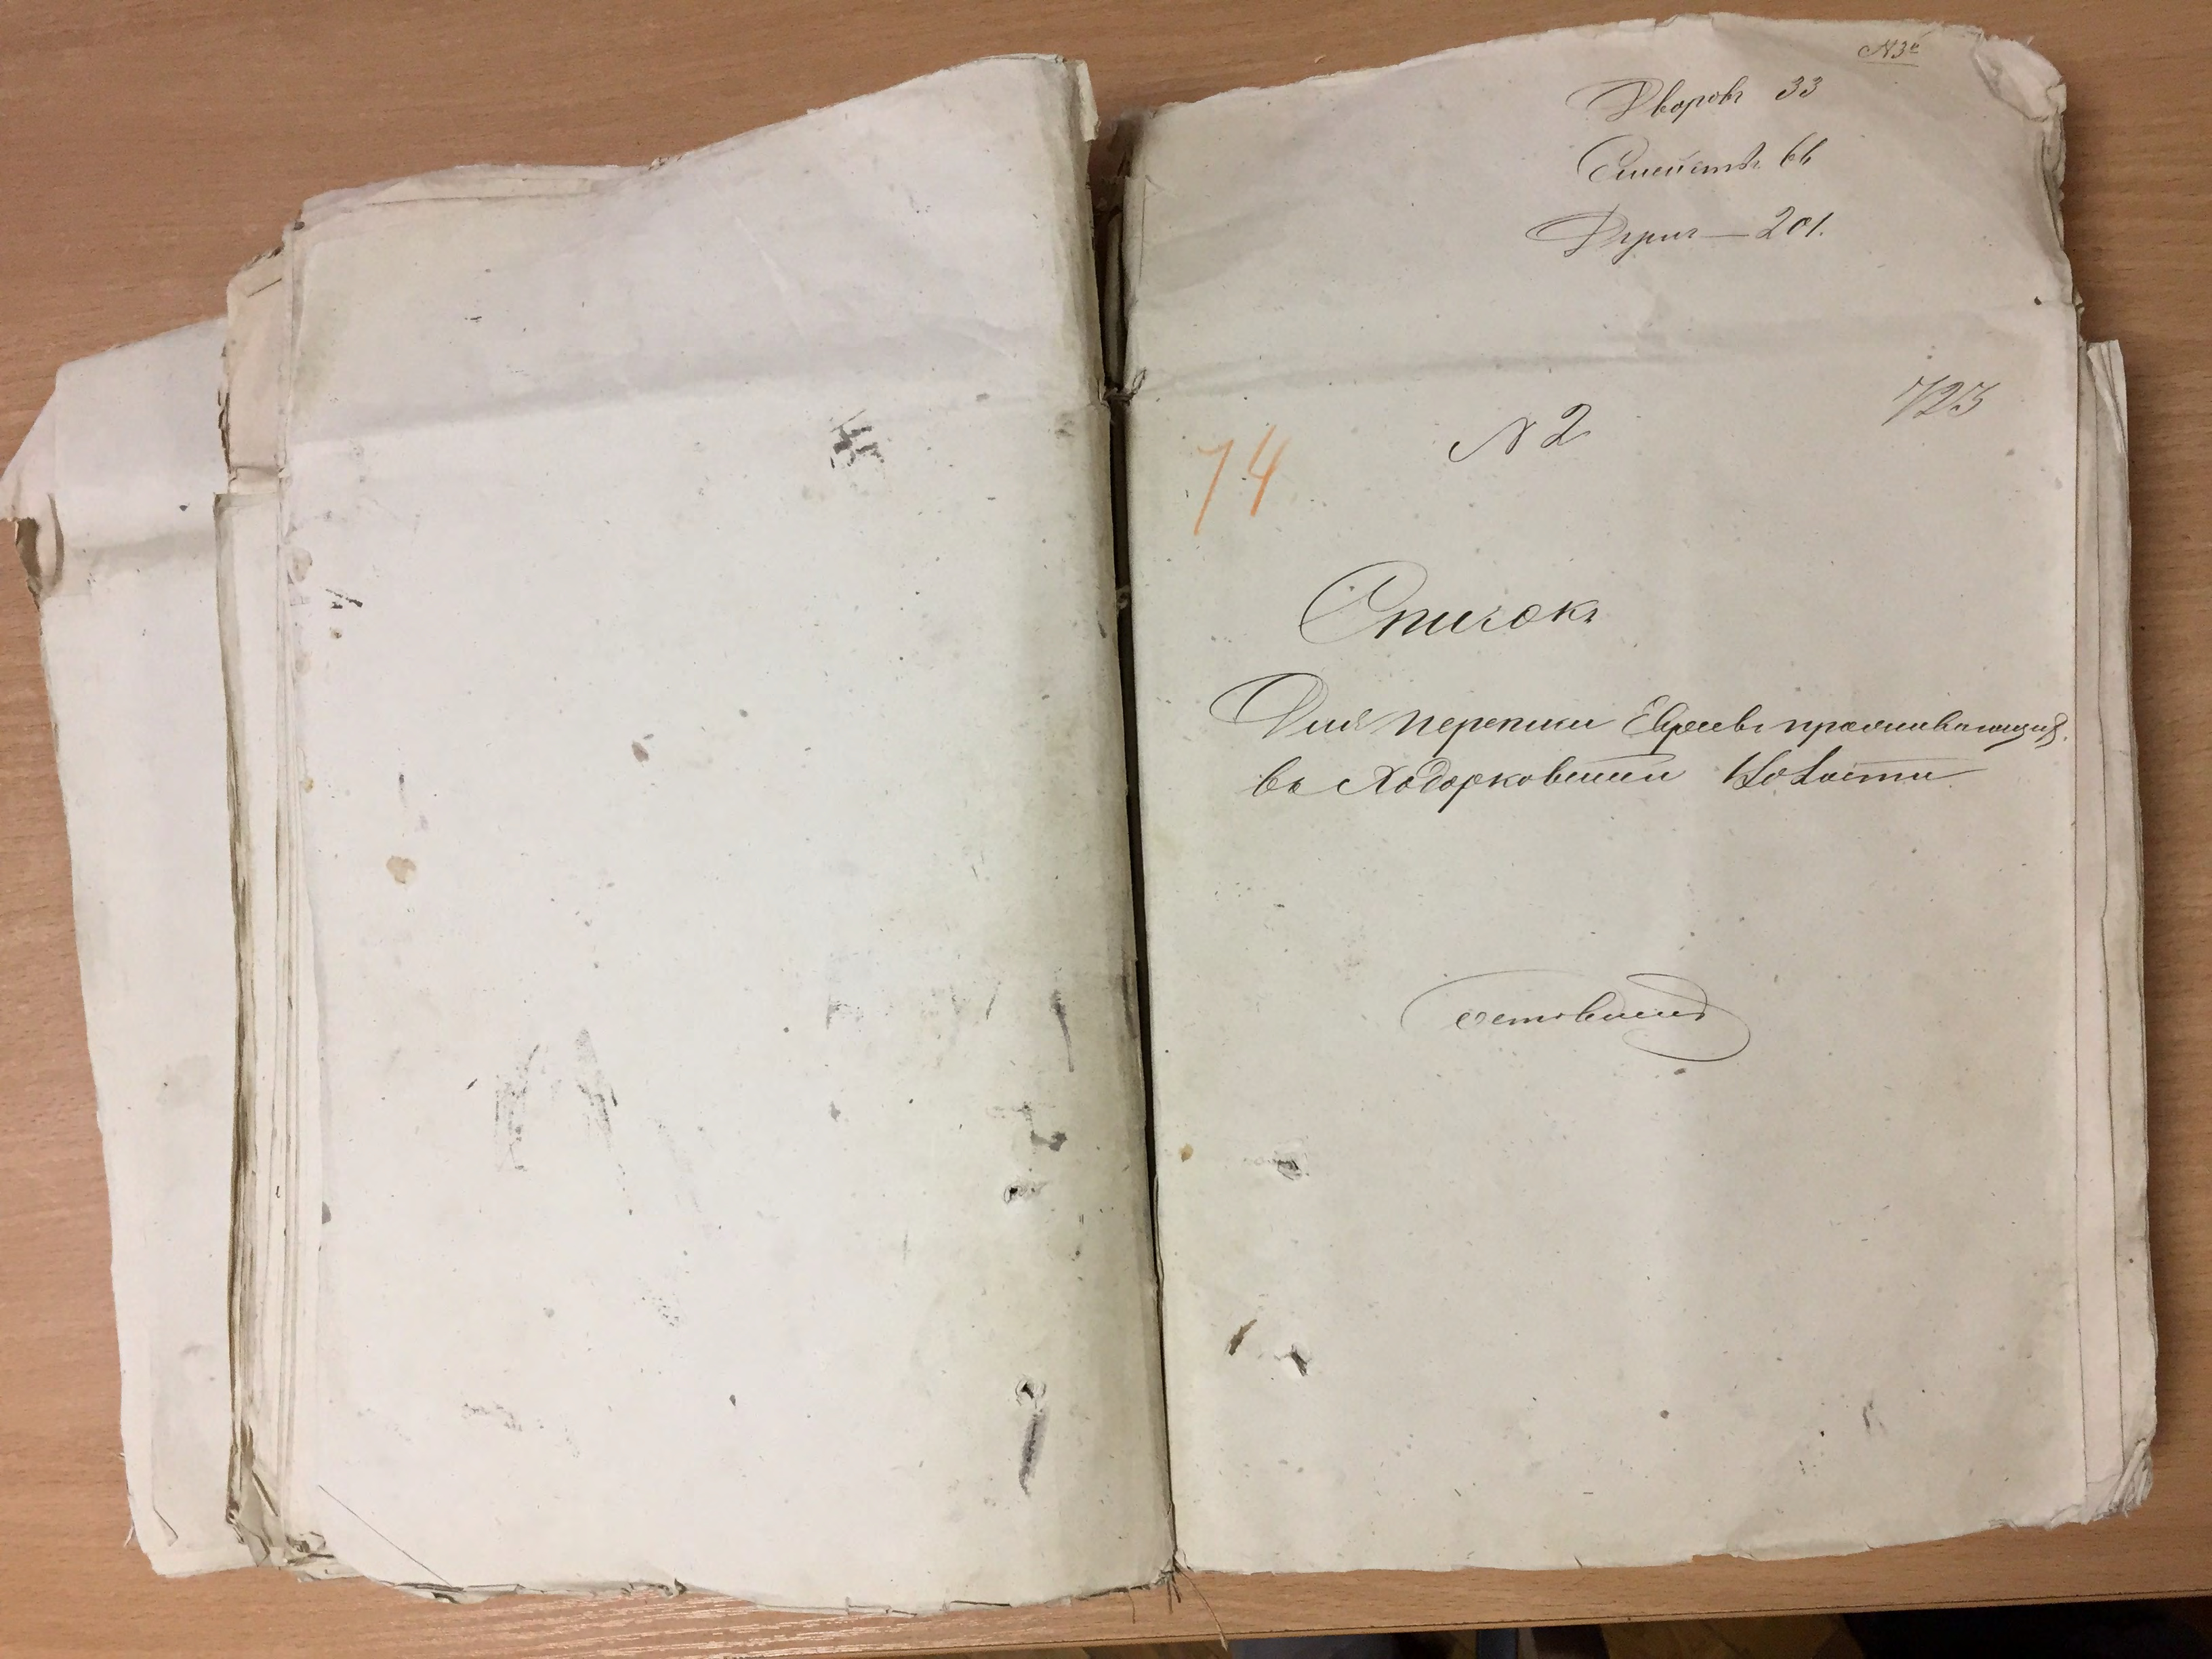 №3й
Дворовъ 33
Семействъ 66
Душъ — 201.
723
№ 2
74
Списокъ
Для переписи Евреевъ проживающихъ
въ Ходорковской Волости